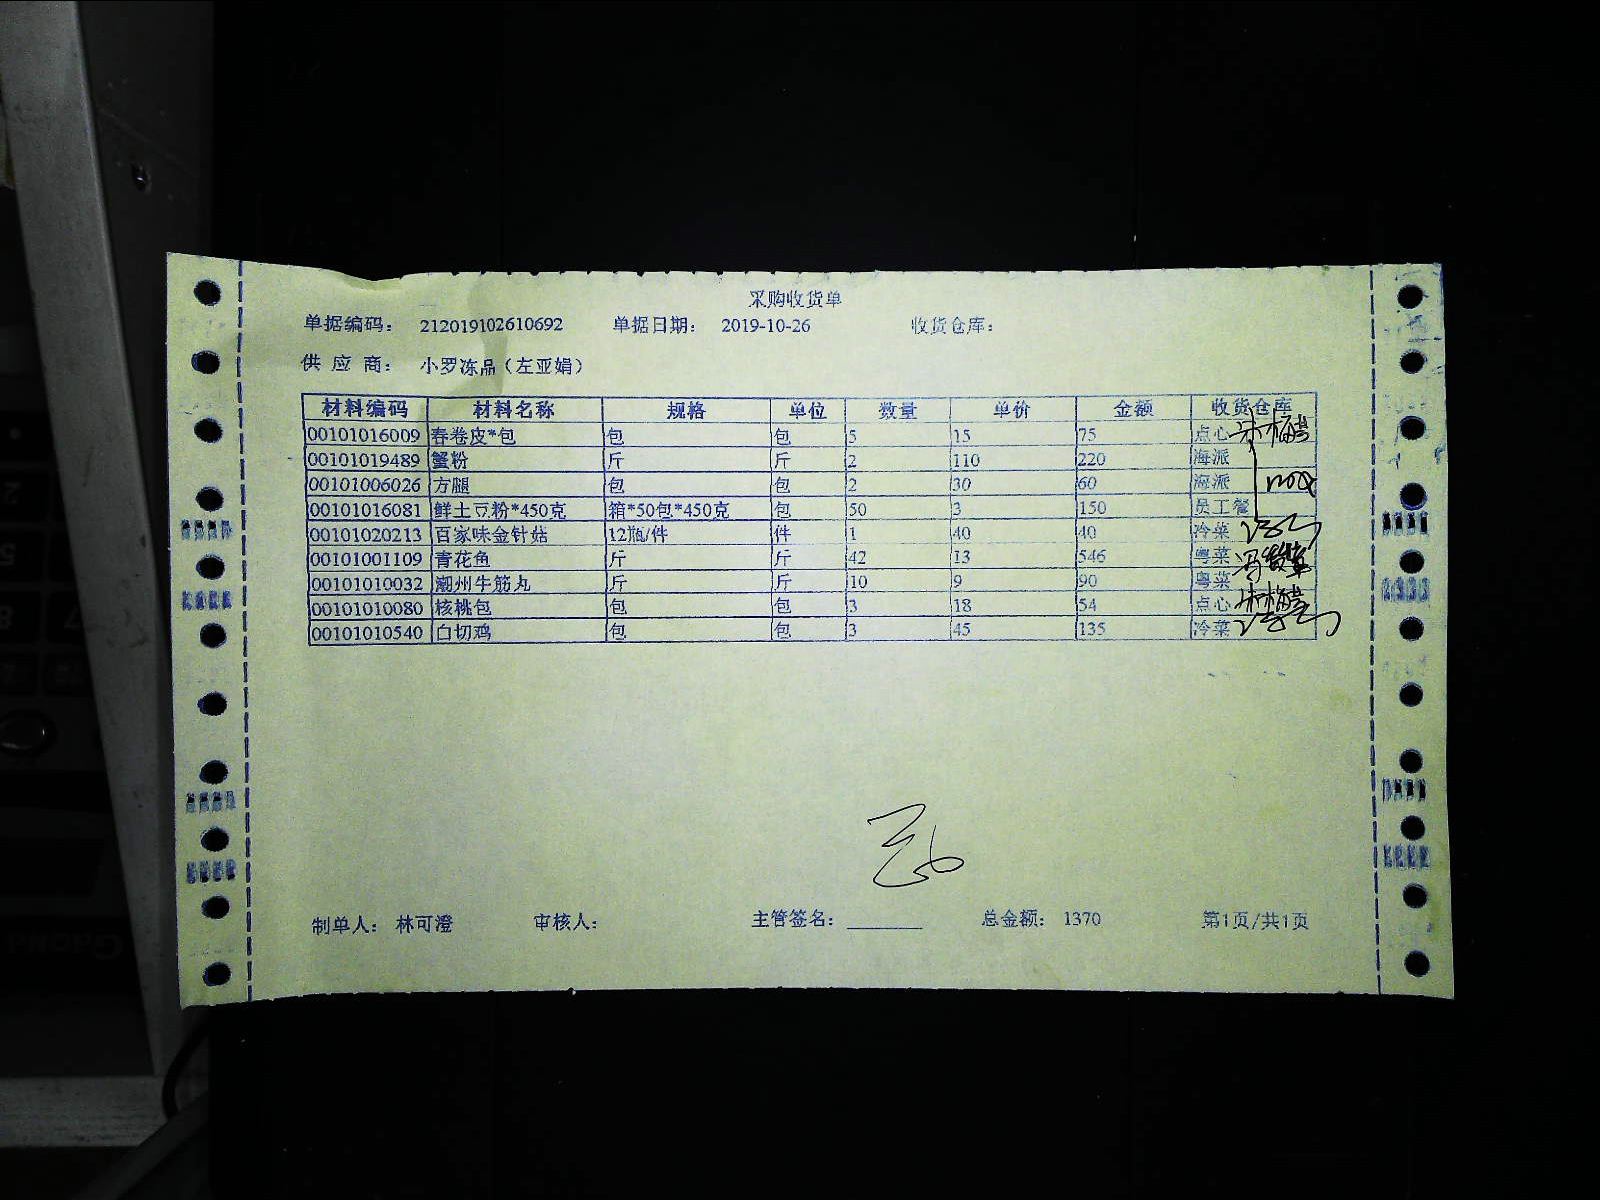 采购收货单
单据编码： 212019102610692 单据日期： 2019-10-26 收货仓库：
供 应 商： 小罗冻品（左亚娟）
材料编码 材料名称 规格 单位 数量 单价 金额 收货仓库
00101016009 春卷皮*包 包 包 5 15 75 点心
00101019489 蟹粉 斤 斤 2 110 220 海派
00101006026 方腿 包 包 2 30 60 海派
00101016081 鲜土豆粉*450克 箱*50包*450克 包 50 3 150 员工餐
00101020213 百家味金针菇 12瓶/件 件 1 40 40 冷菜
00101001109 青花鱼 斤 斤 42 13 546 粤菜
00101010032 潮州牛筋丸 斤 斤 10 9 90 粤菜
00101010080 核桃包 包 包 3 18 54 点心
00101010540 白切鸡 包 包 3 45 135 冷菜
制单人： 林可澄 审核人： 主管签名： 总金额： 1370 第1页/共1页